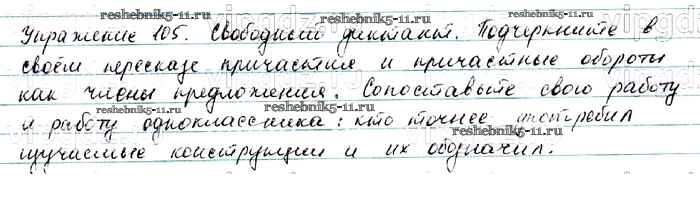 reshebnik5-11.ru
reshebnik5-11.ru
Упражнение 105. Свободный диктант. Подчеркните в
своём пересказе причастия и причастные обороты
как члены предложения. Сопоставьте свою работу
reshebnik5-11.ru
и работу одноклассника: кто точнее употребил
reshebnik5-11.ru
reshebnik5-11.ru
изучаемые конструкции и их обозначил.